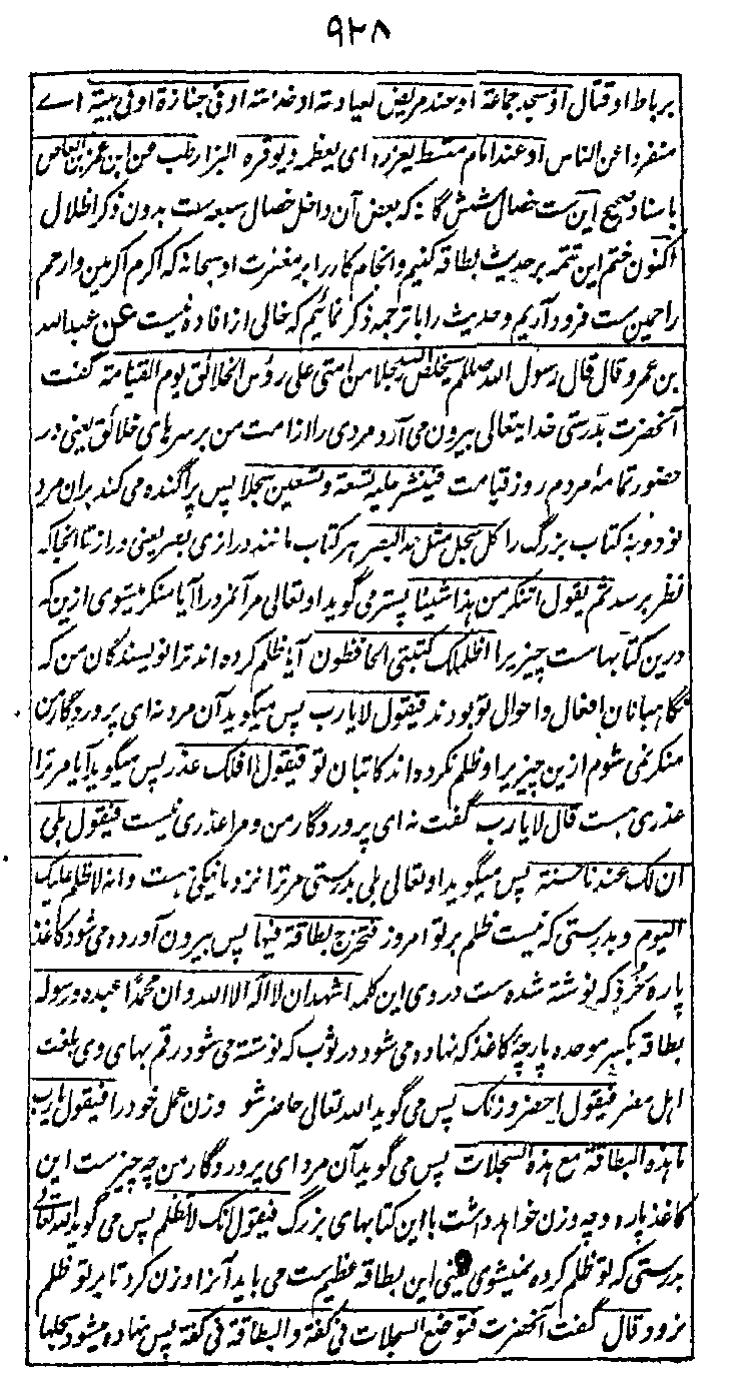 ۹۲۸
برباط او قتال او مسجد جماعة او عند مریض لعیادته او خدمته او فی جنازة او فی بیته اے
منفردا عن الناس او عند امام مقسط یعزره ای یعظمه ویوقره البزار طب عن ابن عمر بن العاص
باسناد صحیح این ست خصال شش گانه که بعض آن داخل خصال سبعه ست بدون ذکر اظلال
اکنون ختم این تتمه بر حدیث بطاقه کنیم و انجام کار را بر مغفرت او سبحانه که اکرم اکرمین وارحم
راحمین ست فرود آریم و حدیث را با ترجمه ذکر نمائیم که خالی از افاده نیست عن عبدالله
بن عمرو قال قال رسول الله صللم سیخلص الله رجلا من امتی علی رؤس الخلائق یوم القیامة گفت
آنحضرت بدرستی خدایتعالی بیرون می آرد مردی را از امت من بر سرهای خلائق یعنی در
حضور تمامه مردم روز قیامت فینشر علیه تسعة وتسعین سجلا پس پراگنده می کند بران مرد
نود و نه کتاب بزرگ را کل سجل مثل مد البصر هر کتاب مانند درازی بصر یعنی دراز تا آنجا که
نظر برسد ثم یقول اتنکر من هذا شیئا پستر می گوید او تعالی مر آنمرد را آیا منکر میشوی ازین که
درین کتابهاست چیزیرا اظلمک کتبتی الحافظون آیا ظلم کرده اند ترا نویسندگان من که
نگاهبانان افعال و احوال تو بودند فیقول لا یا رب پس میگوید آن مرد نه ای پروردگار من
منکر نمی شوم ازین چیزیرا و ظلم نکرده اند کاتبان تو فیقول افلک عذر پس میگوید آیا مر ترا
عذری هست قال لا یا رب گفت نه ای پروردگار من و مرا عذری نیست فیقول بلی
ان لک عندنا حسنة پس میگوید او تعالی بلی بدرستی مر ترا نزد ما نیکی هست وانه لا ظلم علیک
الیوم و بدرستی که نیست ظلم بر تو امروز فتخرج بطاقة فیها پس بیرون آورده می شود کاغذ
پاره خرد که نوشته شده ست در وی این کلمه اشهد ان لا اله الا الله وان محمدا عبده ورسوله
بطاقه بکسر موحده پارچۀ کاغذ که نهاده می شود در ثوب که نوشته می شود رقم بهای وی بلغت
اهل مصر فیقول احضر وزنک پس می گوید الله تعالی حاضر شو وزن عمل خود را فیقول یا رب
ما هذه البطاقة مع هذه السجلات پس می گوید آن مرد ای پروردگار من چه چیز ست این
کاغذ پاره و چه وزن خواهد داشت با این کتابهای بزرگ فیقول انک لا تظلم پس می گوید الله تعالی
بدرستی که تو ظلم کرده نمیشوی یعنی این بطاقه عظیم ست می باید آنرا وزن کرد تا بر تو ظلم
نرود قال گفت آنحضرت فتوضع السجلات فی کفة والبطاقة فی کفة پس نهاده میشود سجلها